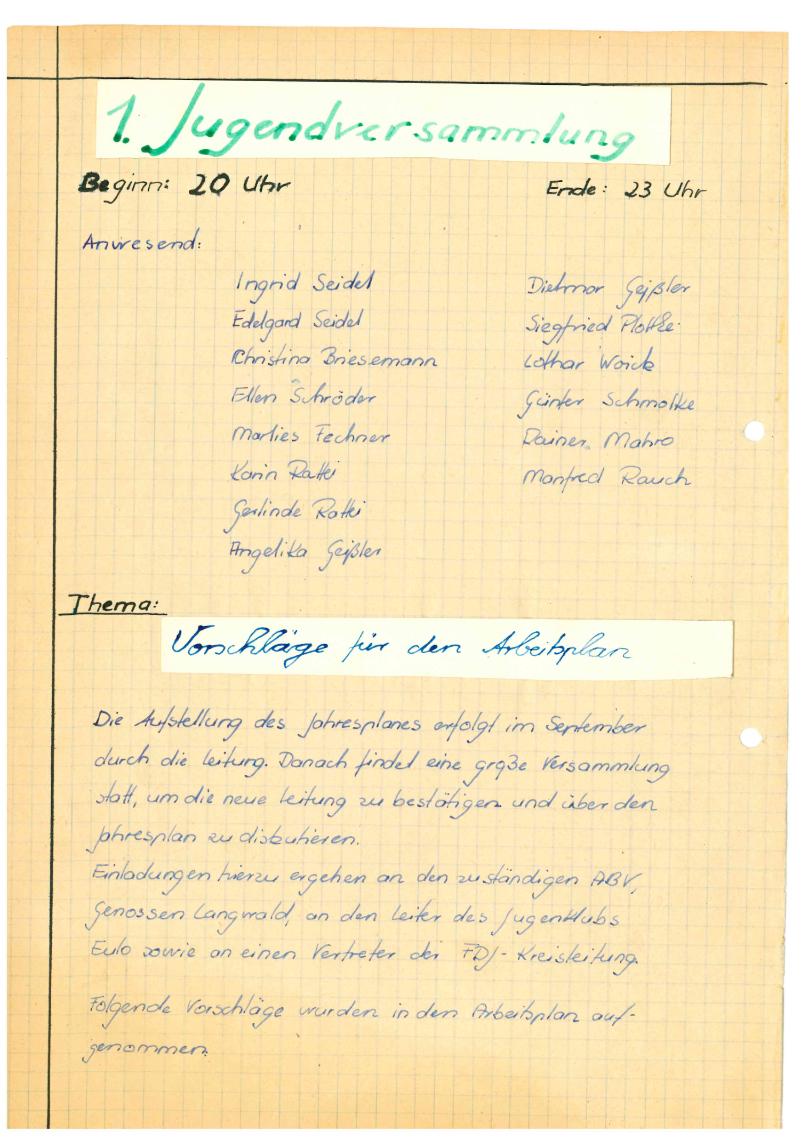 1. Jugendversammlung
Beginn: 20 Uhr Ende: 23 Uhr
Anwesend:
Ingrid Seidel Dietmar Geißler
Edelgard Seidel Siegfried Plottke
Christina Briesemann Lothar Woick
Ellen Schröder Günter Schmolke
Marlies Fechner Rainer Mahro
Karin Rattei Manfred Rauch
Gerlinde Rattei
Angelika Geißler
Thema:
Vorschläge für den Arbeitsplan
Die Aufstellung des Jahresplanes erfolgt im September
durch die Leitung. Danach findet eine große Versammlung
statt, um die neue Leitung zu bestätigen und über den
Jahresplan zu diskutieren.
Einladungen hierzu ergehen an den zuständigen ABV,
Genossen Langwald, an den Leiter des Jugenklubs
Eulo sowie an einen Vertreter der FDJ-Kreisleitung.
Folgende Vorschläge wurden in den Arbeitsplan auf-
genommen: